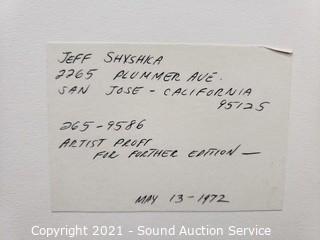 JEFF SHYSHKA
2265 PLUMMER AVE.
SAN JOSE - CALIFORNIA
95125
265-9586
ARTIST PROFF
FOR FURTHER EDITION —
MAY 13-1972
Copyright 2021 - Sound Auction Service